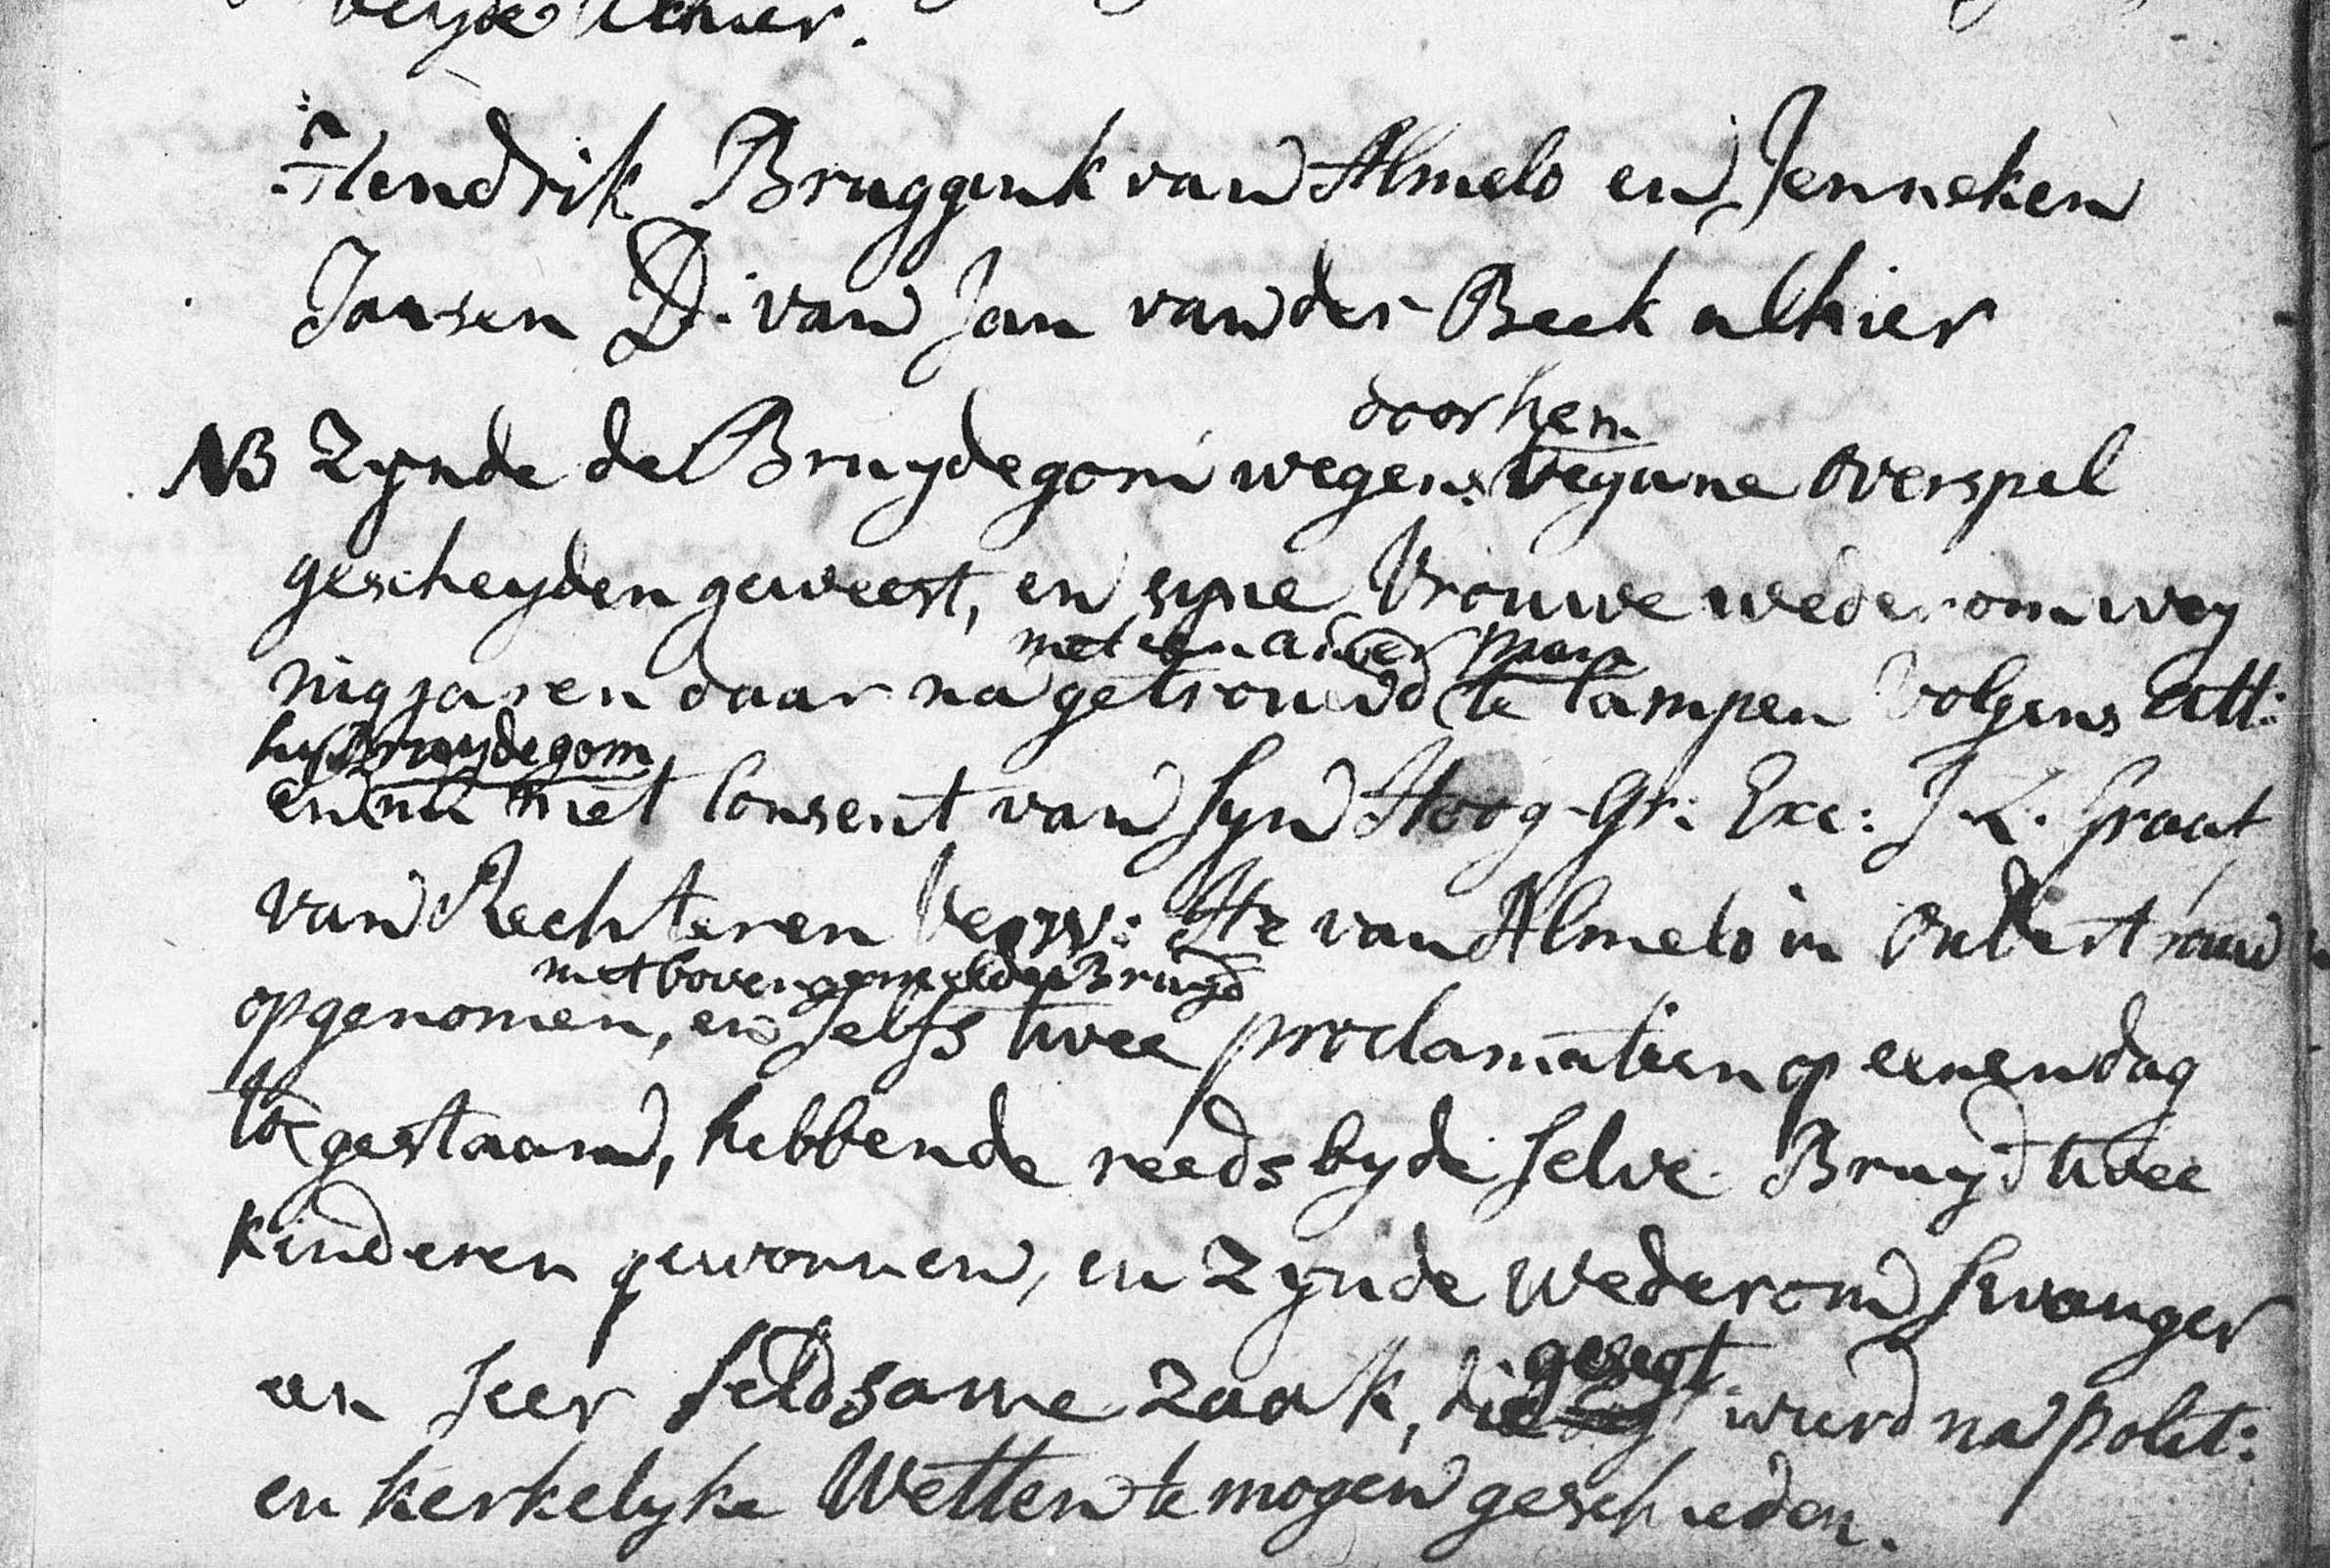 beyde alhier.
Hendrik Bruggink van Almelo en Jenneken
Jansen D: van Jan van der Beek alhier
doorhem
NB Zynde de Bruydegom wegens begane overspel
gescheyden geweest, en syne Vrouwe wederom wey
met een ander man
nig jaren daar na getrouwd te Campen volgens att:
hy Bruydegom
en nu met Consent van Syn Hoog-Gr: Exc: J. L. Graaf
van Rechteren Hr van Almelo in ondertrouw
met bovengemelde Bruyd
opgenomen, en selfs twee proclamatien op eenen dag
toegestaan, hebbende reeds by de selve Bruyd twee
Kinderen gewonnen, en Zynde wederom swanger
gesegt
een seer seldsame zaak, die wurd na polit:
en kerkelyke Wetten te mogen geschieden.